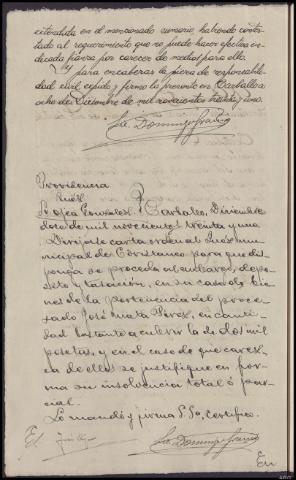 extendida en el mencionado sumario, habiendo contes-
tado al requerimiento que no puede hacer efectiva in-
dicada fianza por carecer de medios para ello.
Y para encabezar la pieza de responsabili-
dad civil expido y firmo la presente en Carballo a
ocho de Diciembre de mil novecientos treinta y uno.
Lic. Domingo
Providencia
Juez
Sr Ogea González. Carballo, Diciembre
doce de mil novecientos treinta y uno
Dirijase carta orden al Juez mu-
nicipal de Coristanco para que dis-
ponga se proceda al embargo, depo-
sito y tasación, en su caso de bie-
nes de la pertenencia del proce-
sado José Mata Perez, en canti-
dad bastante a cubrir la de dos mil
pesetas, y en el caso de que carez-
ca de ellos se justifique en for-
ma su insolvencia total ó par-
cial.
Lo mandó y firma S. Sª, certifico.
Lic. Domingo
En